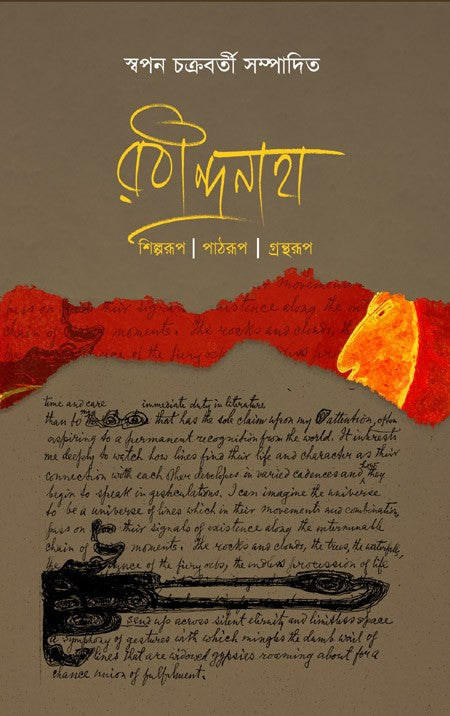 স্বপন চক্রবর্তী সম্পাদিত
রবীন্দ্রনাথ
শিল্পরূপ | পাঠরূপ | গ্রন্থরূপ
movement
pass on their signals of existence along the
chain of moments. The rocks and clouds, the
of the fiery orbs
time and care immediate duty in literature
than to that has the sole claim upon my attention, often
aspiring to a permanent recognition from the world. It interests
me deeply to watch how lines find their life and character as their
connection with each other developes in varied cadences and they
begin to speak in gesticulations. I can imagine the universe
to be a universe of lines which in their movements and combinations
pass on their signals of existence along the interminable
chain of moments. The rocks and clouds, the trees, the waterfalls,
the dance of the fiery orbs, the endless procession of life
send up across silent eternity and limitless space
a symphony of gestures with which mingles the dumb wail of
lines that are widowed gypsies roaming about for a
chance union of fulfilment.